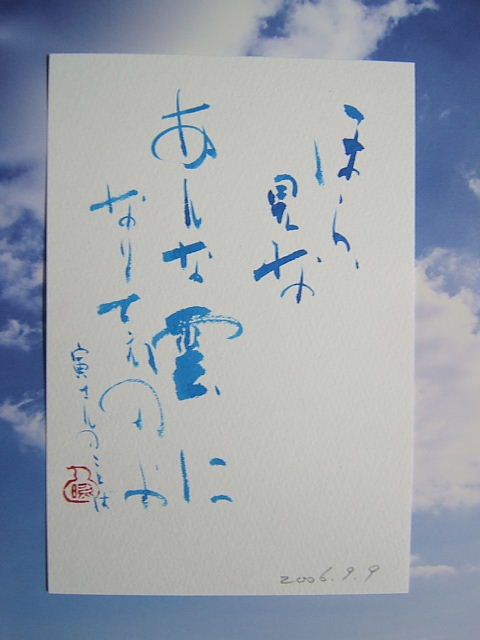 ほら、
見な
あんな雲に
なりてえのよ
寅さんのことば
2006.9.9